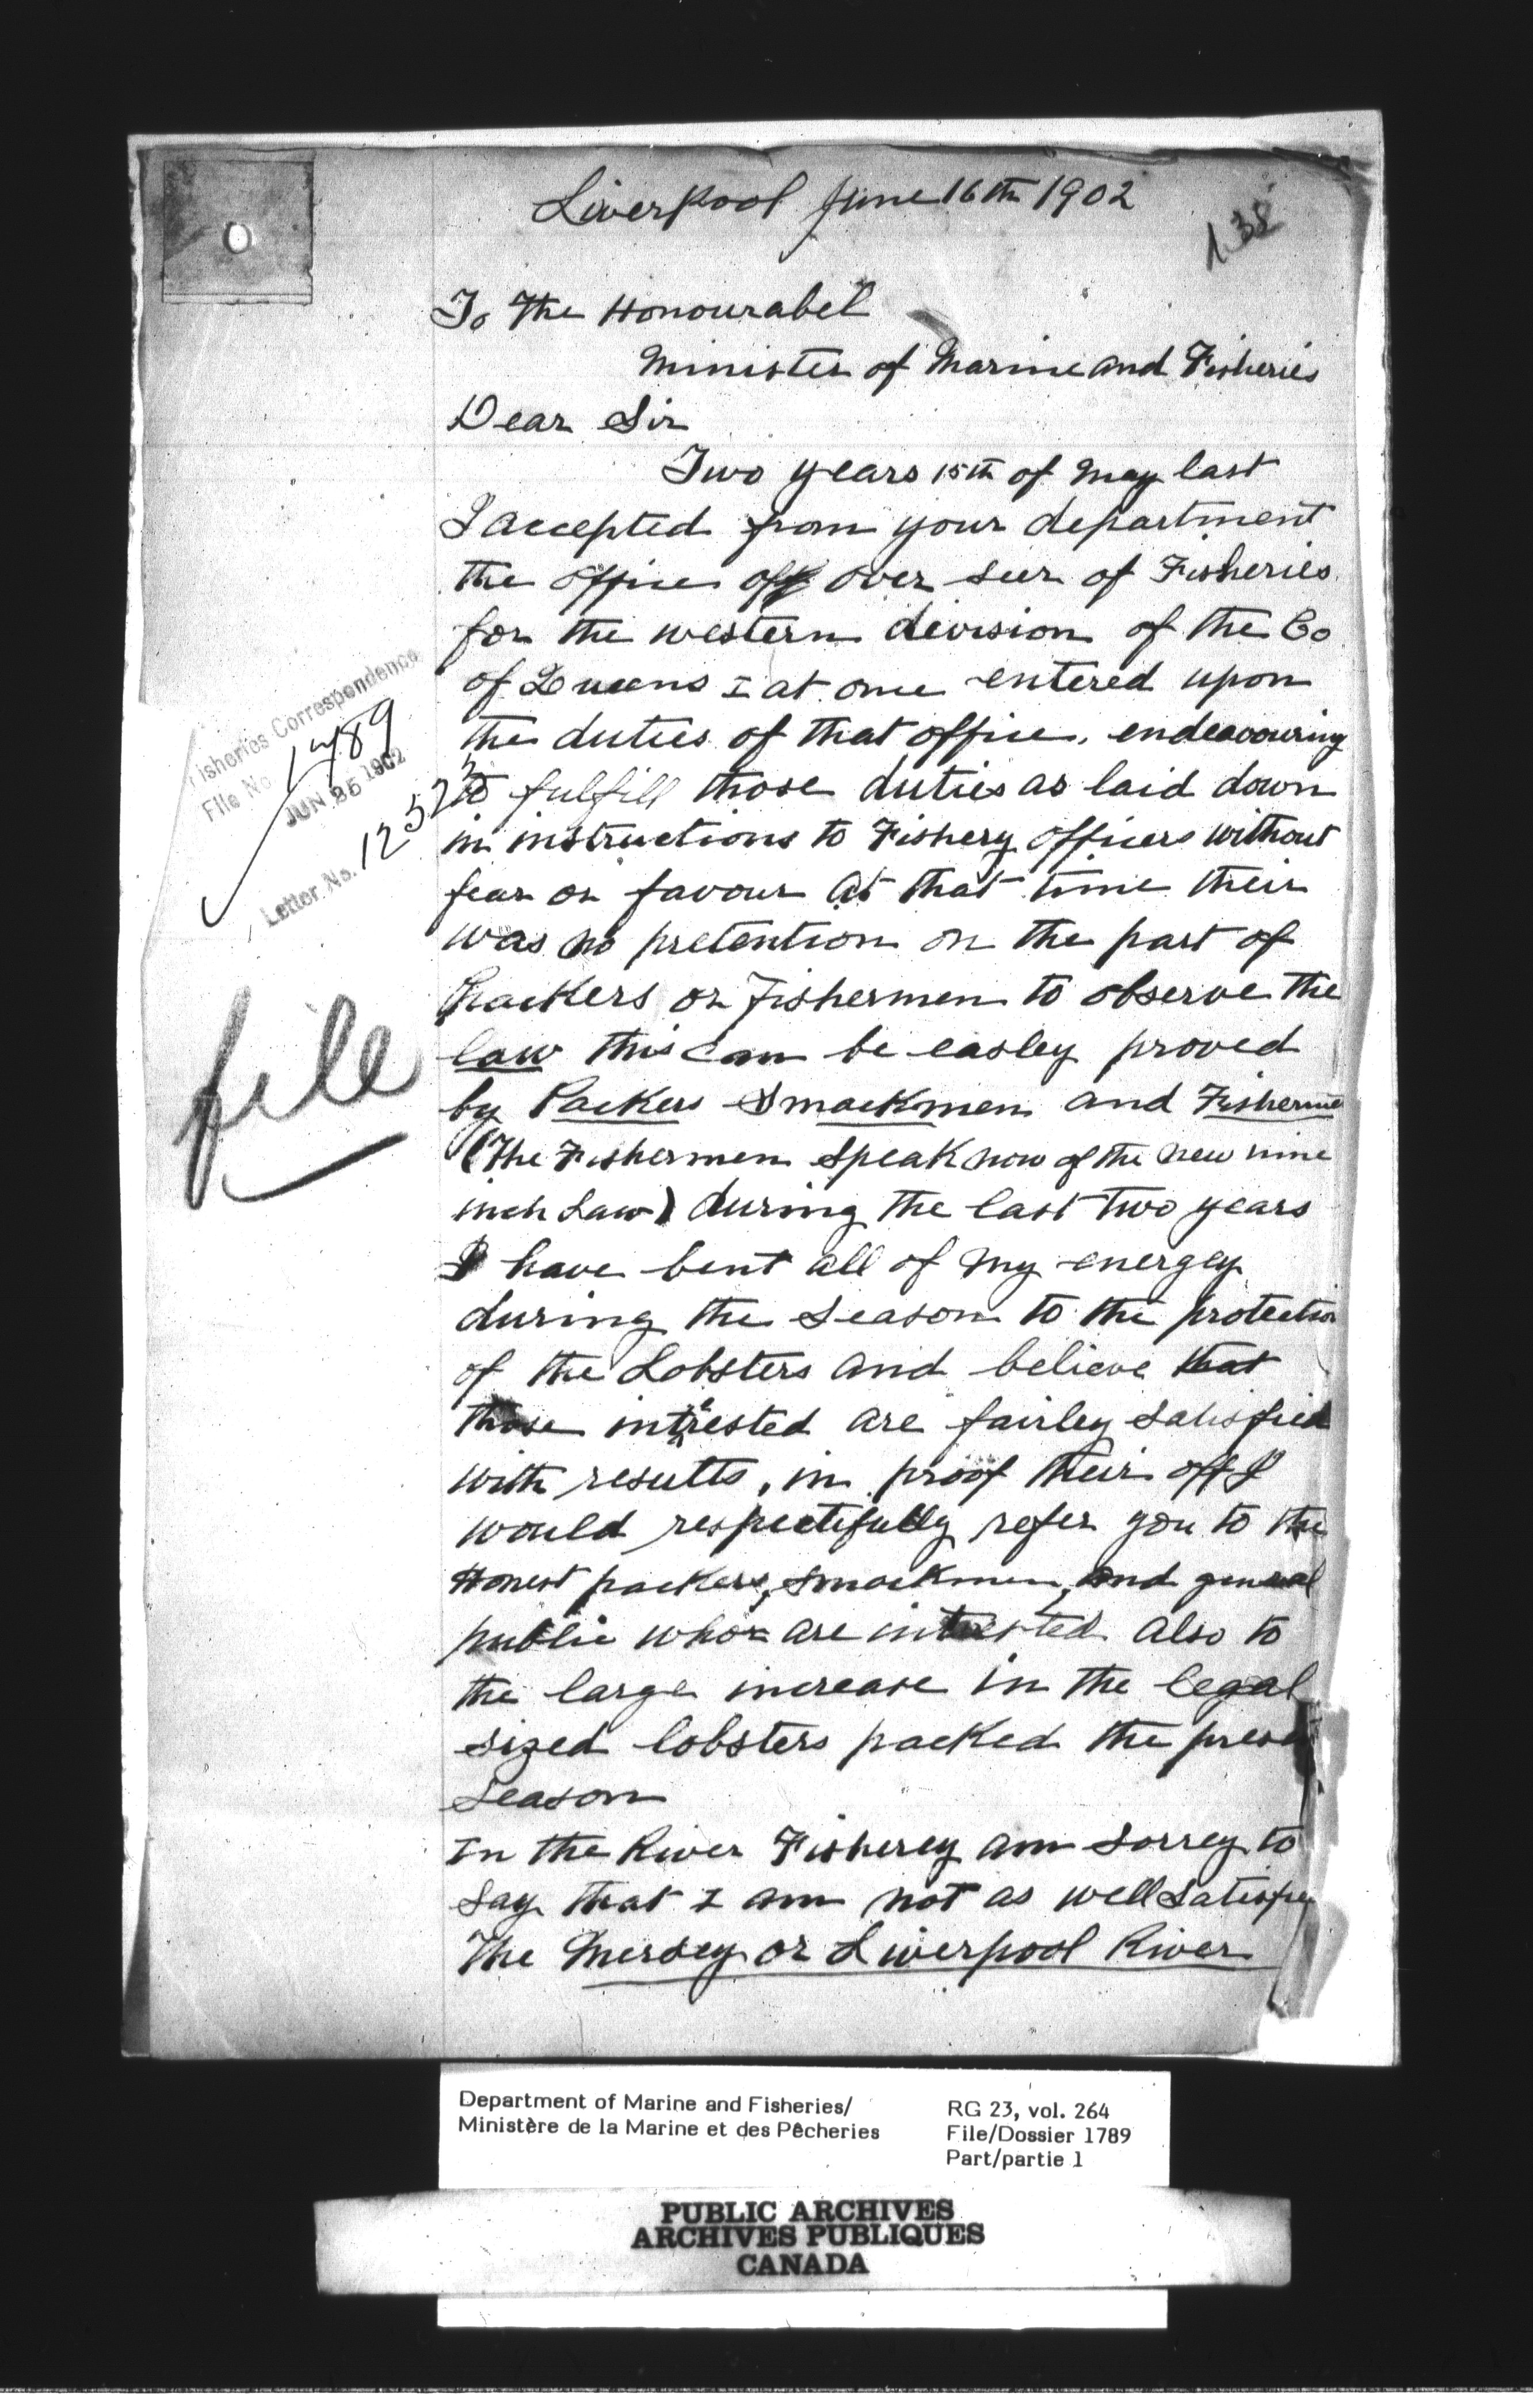 Liverpool June 16th 1902
138
To The Honourabel
Minister of Marine and Fisheries
Dear Sir
Two years 15th of May last
I accepted from your department
the office off over seer of Fisheries
for the western division of the Co
of Queens I at once entered upon
the duties of that office, endeavouring
to fulfill those duties as laid down
in instructions to Fishery officers without
fear or favour At that time their
was no pretention on the part of
Packers or Fishermen to observe the
law this can be easley proved
by Packers Smackmen and Fisherme
(The Fishermen speak now of the new nine
inch Law) during the last two years
I have bent all of my energey
during the Season to the protection
of the Lobsters and believe that
those intrested are fairley satisfied
with results, in proof their off I
would respectifully refer you to the
Honest packers, smackmen, and general
public who are intrested also to
the large increase in the legal
sized lobsters packed the present
Season
In the River Fisherey am sorrey to
say that I am not as well satisfied
The Mersey or Liverpool River
Fisheries Correspondence
File No. 1789
JUN 25 1902
Letter No. 12522
file
Department of Marine and Fisheries/
Ministère de la Marine et des Pêcheries
RG 23, vol. 264
File/Dossier 1789
Part/partie 1
PUBLIC ARCHIVES
ARCHIVES PUBLIQUES
CANADA